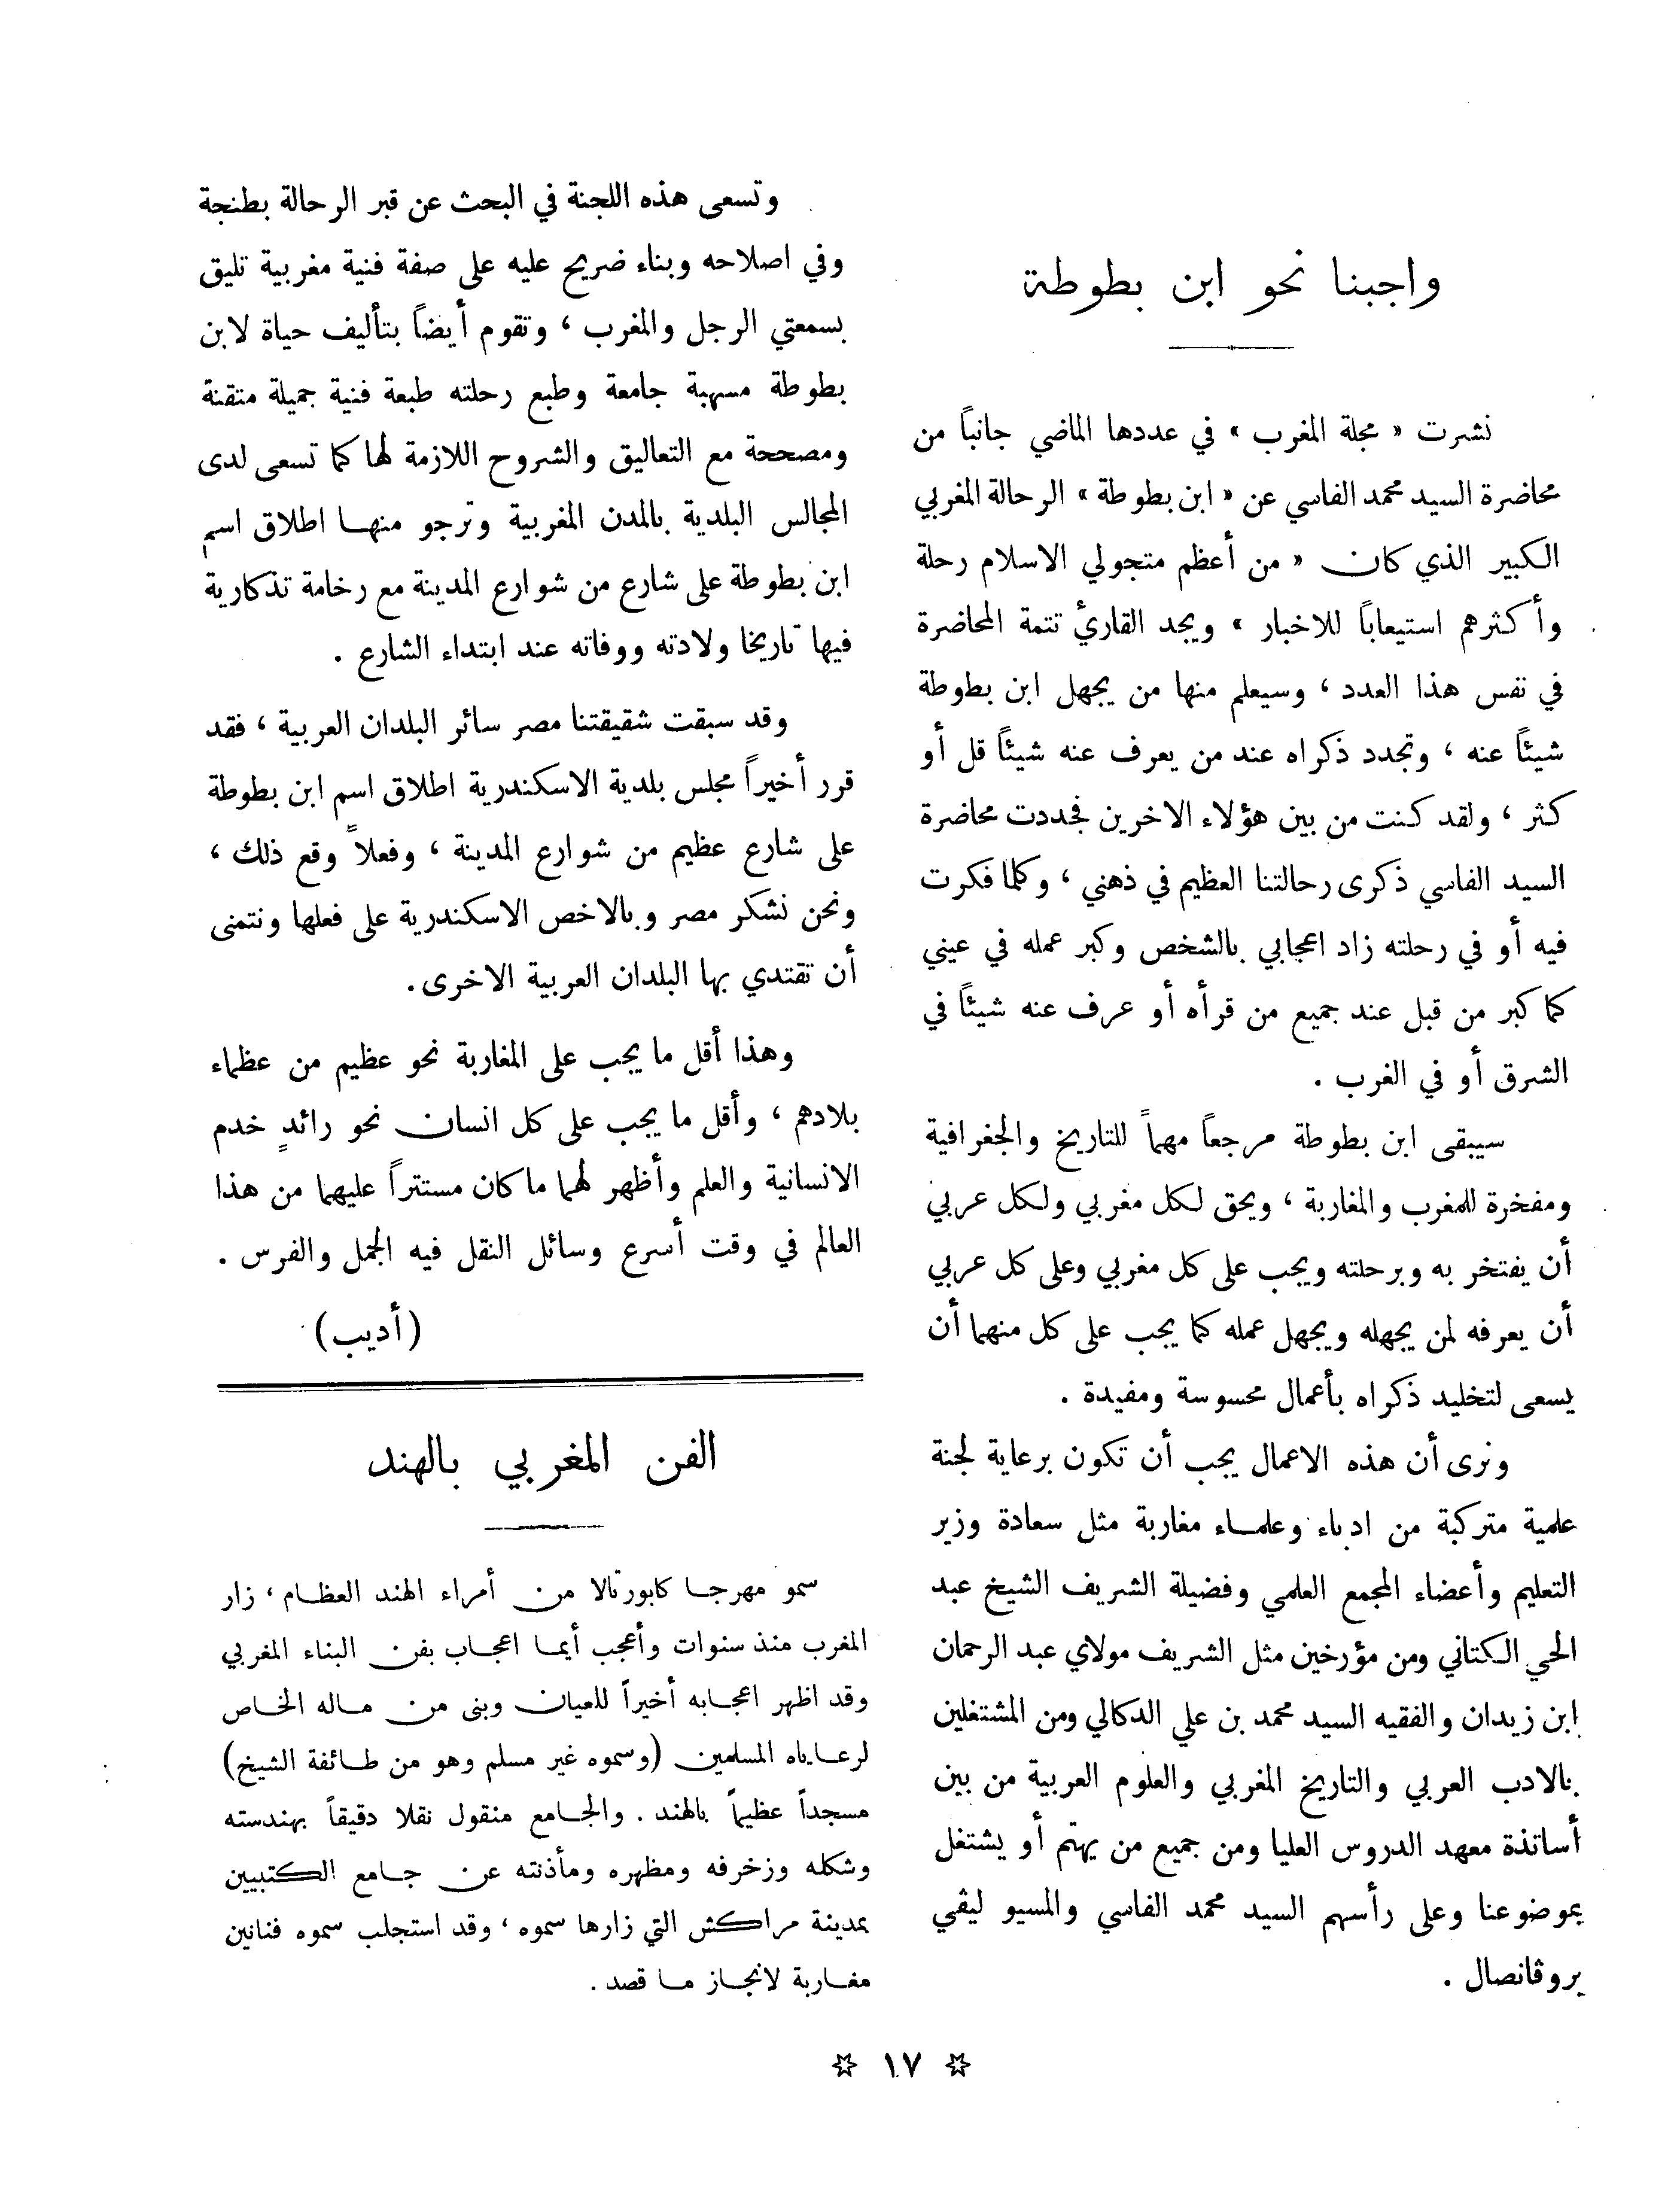 واجبنا نحو ابن بطوطة
نشرت « مجلة المغرب » في عددها الماضي جانباً من
محاضرة السيد محمد الفاسي عن « ابن بطوطة » الرحالة المغربي
الكبير الذي كان « من أعظم متجولي الاسلام رحلة
وأكثرهم استيعاباً للاخبار » ويجد القارئ تتمة المحاضرة
في نفس هذا العدد ، وسيعلم منها من يجهل ابن بطوطة
شيئاً عنه ، وتجدد ذكراه عند من يعرف عنه شيئاً قل أو
كثر ، ولقد كنت من بين هؤلاء الاخرين فجددت محاضرة
السيد الفاسي ذكرى رحالتنا العظيم في ذهني ، وكلما فكرت
فيه أو في رحلته زاد اعجابي بالشخص وكبر عمله في عيني
كما كبر من قبل عند جميع من قرأه أو عرف عنه شيئاً في
الشرق أو في الغرب .
سيبقى ابن بطوطة مرجعاً مهماً للتاريخ والجغرافية
ومفخرة للمغرب والمغاربة ، ويحق لكل مغربي ولكل عربي
أن يفتخر به وبرحلته ويجب على كل مغربي وعلى كل عربي
أن يعرفه لمن يجهله ويجهل عمله كما يجب على كل منهما أن
يسعى لتخليد ذكراه بأعمال محسوسة ومفيدة .
ونرى أن هذه الاعمال يجب أن تكون برعاية لجنة
علمية متركبة من ادباء وعلماء مغاربة مثل سعادة وزير
التعليم وأعضاء المجمع العلمي وفضيلة الشريف الشيخ عبد
الحي الكتاني ومن مؤرخين مثل الشريف مولاي عبد الرحمان
ابن زيدان والفقيه السيد محمد بن علي الدكالي ومن المشتغلين
بالادب العربي والتاريخ المغربي والعلوم العربية من بين
أساتذة معهد الدروس العليا ومن جميع من يهتم أو يشتغل
بموضوعنا وعلى رأسهم السيد محمد الفاسي والمسيو ليڤي
بروڤانصال .
وتسعى هذه اللجنة في البحث عن قبر الرحالة بطنجة
وفي اصلاحه وبناء ضريح عليه على صفة فنية مغربية تليق
بسمعتي الرجل والمغرب ، وتقوم أيضاً بتأليف حياة لابن
بطوطة مسهبة جامعة وطبع رحلته طبعة فنية جميلة متقنة
ومصححة مع التعاليق والشروح اللازمة لها كما تسعى لدى
المجالس البلدية بالمدن المغربية وترجو منها اطلاق اسم
ابن بطوطة على شارع من شوارع المدينة مع رخامة تذكارية
فيها تاريخا ولادته ووفاته عند ابتداء الشارع .
وقد سبقت شقيقتنا مصر سائر البلدان العربية ، فقد
قرر أخيراً مجلس بلدية الاسكندرية اطلاق اسم ابن بطوطة
على شارع عظيم من شوارع المدينة ، وفعلاً وقع ذلك ،
ونحن نشكر مصر وبالاخص الاسكندرية على فعلها ونتمنى
أن تقتدي بها البلدان العربية الاخرى .
وهذا أقل ما يجب على المغاربة نحو عظيم من عظماء
بلادهم ، وأقل ما يجب على كل انسان نحو رائدٍ خدم
الانسانية والعلم وأظهر لهما ما كان مستتراً عليهما من هذا
العالم في وقت أسرع وسائل النقل فيه الجمل والفرس .
(أديب)
الفن المغربي بالهند
سمو مهرجا كابورتالا من أمراء الهند العظام ، زار
المغرب منذ سنوات وأعجب أيما اعجاب بفن البناء المغربي
وقد اظهر اعجابه أخيراً للعيان وبنى من ماله الخاص
لرعاياه المسلمين (وسموه غير مسلم وهو من طائفة الشيخ)
مسجداً عظيماً بالهند . والجامع منقول نقلا دقيقاً بهندسته
وشكله وزخرفه ومظهره ومأذنته عن جامع الكتبيين
بمدينة مراكش التي زارها سموه ، وقد استجلب سموه فنانين
مغاربة لانجاز ما قصد .
☆ ١٧ ☆